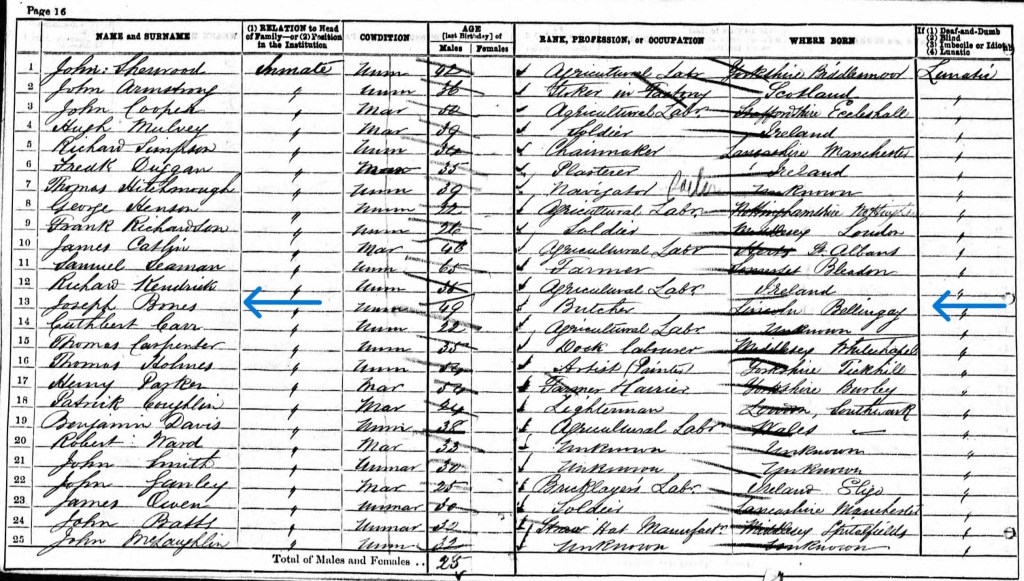 Page 16
NAME and SURNAME (1) RELATION to Head of Family—or (2) Position in the Institution CONDITION AGE [last Birthday] of Males Females RANK, PROFESSION, or OCCUPATION WHERE BORN If (1) Deaf-and-Dumb (2) Blind (3) Imbecile or Idiot (4) Lunatic
1 John Sherwood Inmate Unm Agricultural Labr Yorkshire Lunatic
2 John Armstrong " Unm 36 Stoker in Factory Scotland "
3 John Cooper " Mar Agricultural Labr Staffordshire Eccleshall "
4 Hugh Mulvey " Mar 39 Soldier Ireland "
5 Richard Simpson " Unm Chairmaker Lancashire Manchester "
6 Fredk Duggan " 35 Plasterer Ireland "
7 Thomas " Unm 39 Navigator Unknown "
8 George Henson " Unm Agricultural Labr Nottinghamshire "
9 Frank Richardson " Unm 26 Soldier Middlesex London "
10 James Catlin " Mar 48 Agricultural Labr Herts St Albans "
11 Samuel Seaman " Unm 65 Farmer Somerset Bleadon "
12 Richard Kendrick " Unm Agricultural Labr Ireland "
13 Joseph Bones " Unm 49 Butcher Lincoln Billingay "
14 Cuthbert Carr " Unm 22 Agricultural Labr Unknown "
15 Thomas Carpenter " Unm 35 Dock Labourer Middlesex Whitechapel "
16 Thomas Holmes " Unm 54 Artist (Painter) Yorkshire Tickhill "
17 Henry Parker " Mar Farmer Yorkshire Burley "
18 Patrick Coughlin " Mar 24 Lighterman London, Southwark "
19 Benjamin Davis " Unm 38 Agricultural Labr Wales "
20 Robert Ward " Mar 33 Unknown Unknown "
21 John Smith " Unmar 30 Unknown Unknown "
22 John " Mar 25 Bricklayer's Labr Ireland Sligo "
23 James Owen " Unmar 30 Soldier Lancashire Manchester "
24 John Batts " Unmar 32 Straw Hat Manufactr Middlesex Spitalfields "
25 John McLaughlin " Unm 32 Unknown Unknown "
Total of Males and Females .. 25